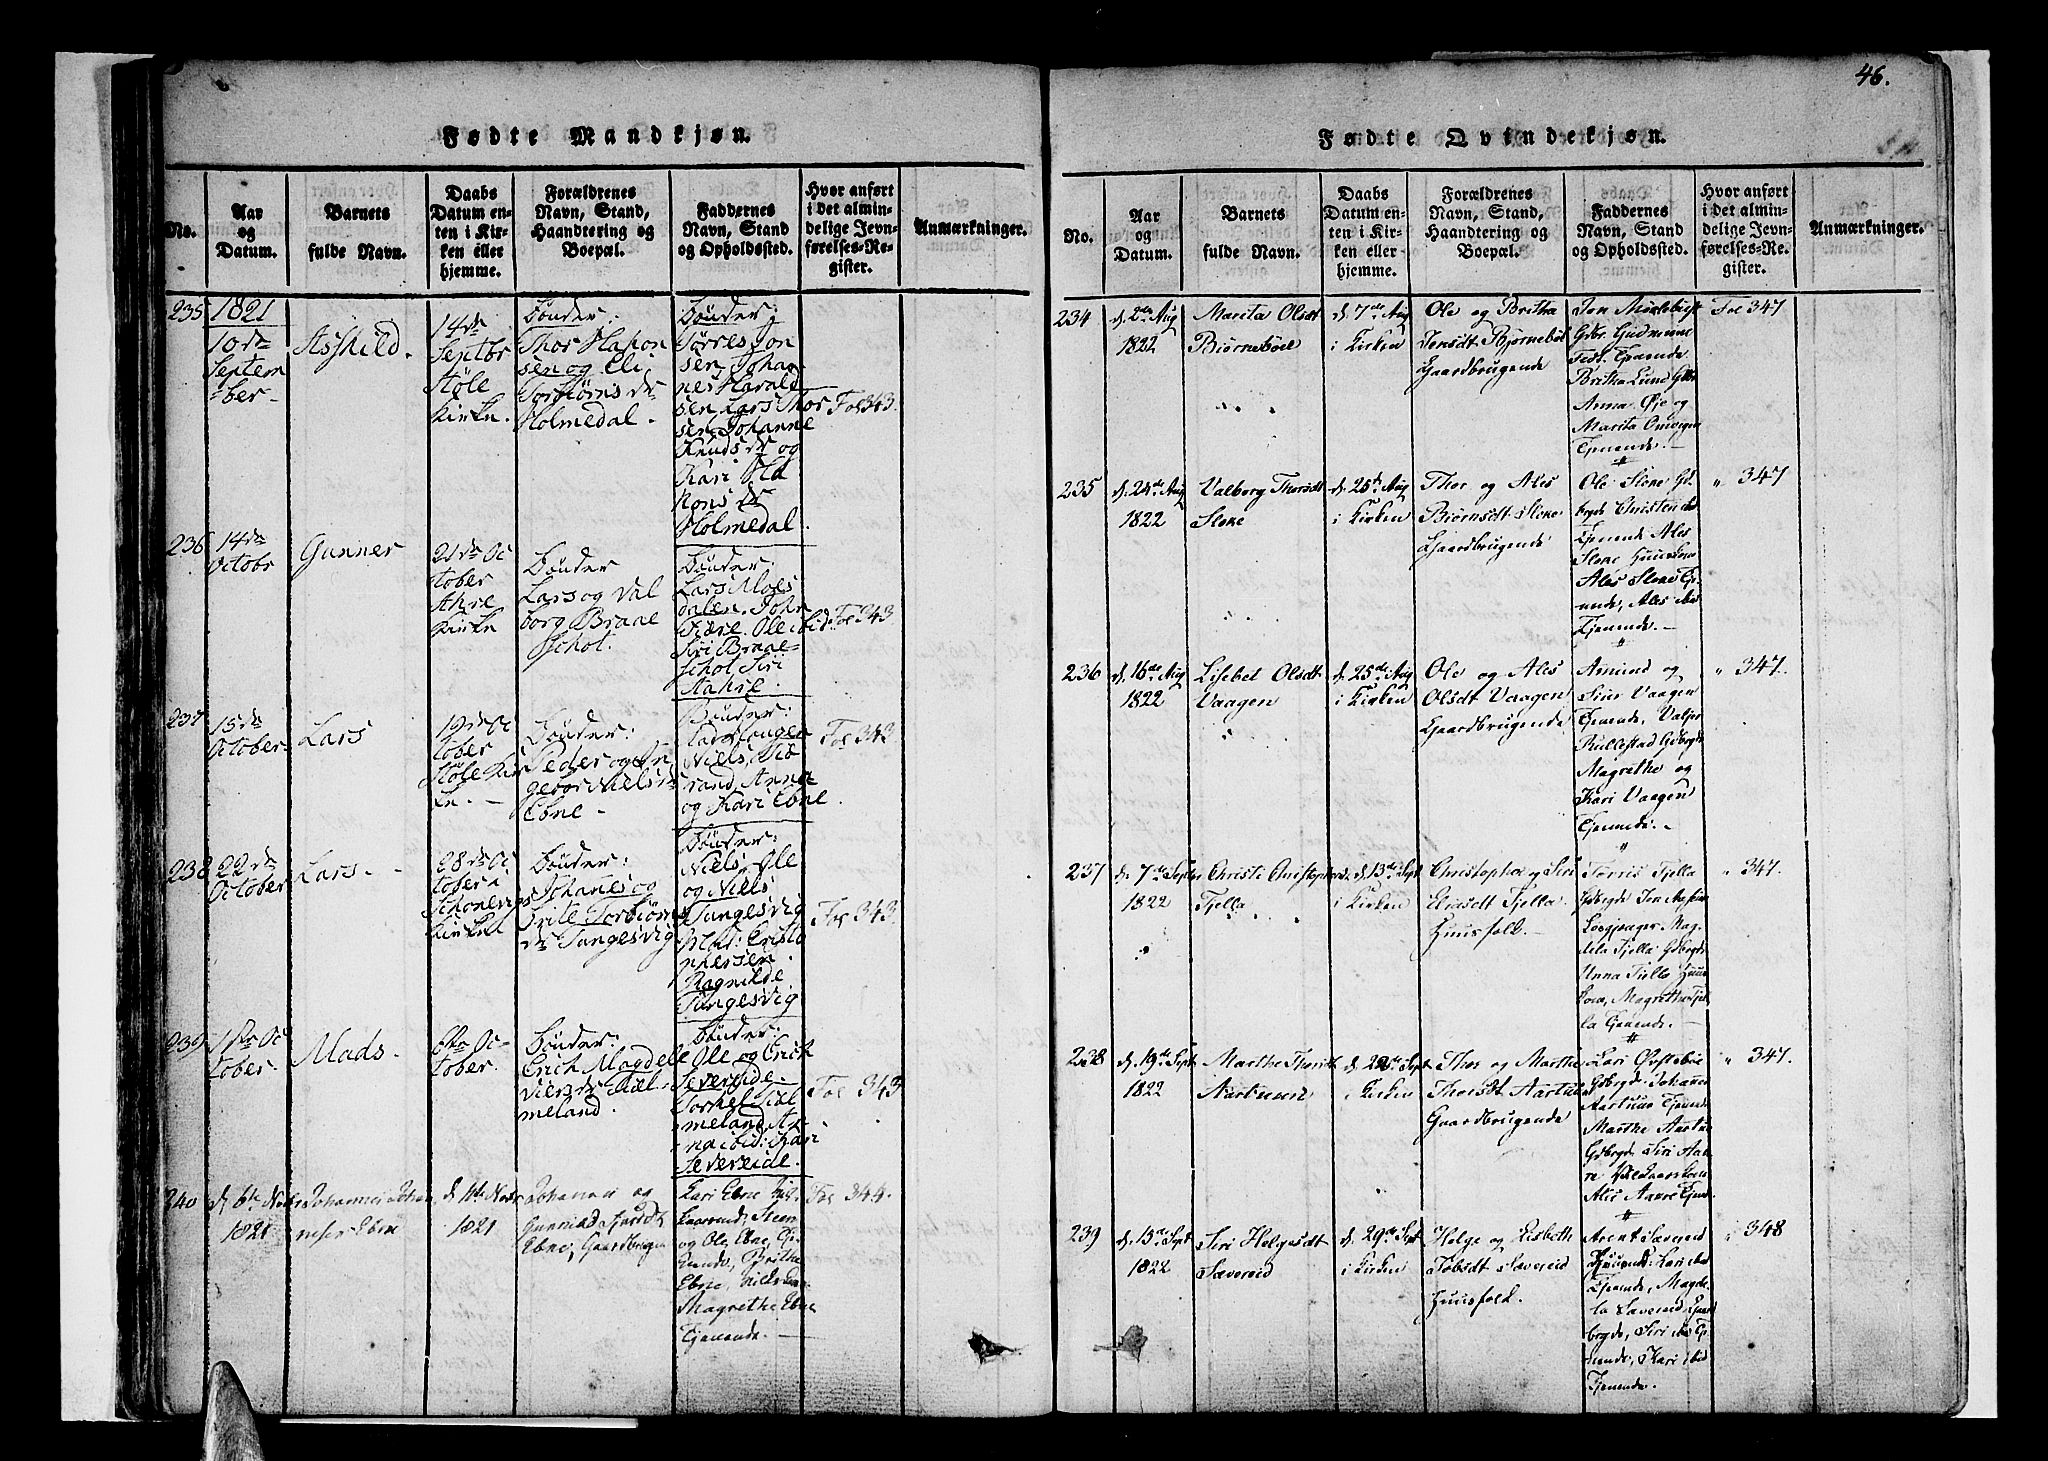 46.
Fødte Mandkjøn.
No.
Aar
og
Datum.
Barnets
fulde Navn.
Daabs
Datum en-
ten i Kir-
ken eller
hjemme.
Forældrenes
Navn, Stand,
Haandtering og
Boepæl.
Faddernes
Navn, Stand
og Opholdssted.
Hvor anført
i det almin-
delige Jevn-
førelses-Re-
gister.
Anmærkninger.
235
1821
10de
Septem
ber
Asskild.
14de
Septbr
Støle
Kirke.
Bønder.
Thor Hakon
sen og Eli
Torbiørns dr
Holmedal.
Bønder:
Tørres Jon
sen, Johan
nes Harald
sen, Lars Thor
sen, Johanne
Knuds dr og
Kari Ha
kons dr
Holmedal.
Fol 343.
236
14de
Octobr
Gunner
21de Oc
tober
Ahre
Kirke
Bønder
Lars og Val
borg Braae
schot.
Bønder:
Lars Moes
dalen. John
Fiære. Ole ibid
Siri Braae-
schot Siri
Aahre.
Fol 343
237
15de
October
Lars
19de Oc
tober
Støle Kir
ke.
Bønder:
Peder og In
gebor Niels dr
Ebne
Bønder:
Niels,
Anna
og Kari Ebne.
Fol 343
238
22de
October
Lars
28de Oc
tober i
Schonevigs
Kirke
Bønder:
Johanes og
Brite Torbiørns
dr Tungesvig
Bønder:
Niels, Ole
og Niels
Tungesvig
Mad: Cristo
phersen
Ragnilde
Tungesvig
Fol 343.
239
1ste Oc
tober.
Mads.
6te Oc-
tober.
Bønder:
Erich Magdele
Viers dr Kiel
meland.
Bønder:
Ole og Erich
Severeide.
Torkel Kiel
meland, An
na ibid: Kari
Severeide.
Fol 343
240
d. 6te Novbr
1821
Johannes Johan
nesen Ebne
d. 11te Novbr
1821
Johannes og
Gunnild Sjursdt
Ebne, Gaardbrugen
Kari Ebne
Steen
og Ole Ebne, Tje
nende, Brithe
Ebne,
Magrethe Ebne
Tjenende.
Fol 344.
Fødte Qvindekjøn.
No.
Aar
og
Datum.
Barnets
fulde Navn.
Daabs
Datum en-
ten i Kir-
ken eller
hjemme.
Forældrenes
Navn, Stand,
Haandtering og
Boepæl.
Faddernes
Navn, Stand
og Opholdssted.
Hvor anført
i det almin-
delige Jevn-
førelses-Re-
gister.
Anmærkninger.
234
d. 2den Aug
1822
Marita Olsdt
Biørnebøle
d. 7de Aug
i Kirken
Ole og Britha
Jensdt Bjørnebøl
Gaardbrugende
Jon Mælebust
Gbr. Gudmund
Tjenende
Britha Lund Gbr
Anna Øje og
Marita Omvigen
Tjenende.
Fol 347
235
d. 24de Aug
1822
Valborg Thorsdt
Sloke
d. 25de Aug
i Kirken
Thor og Ales
Biørnsdt Sloke
Gaardbrugende
Ole Sloke Gd.
brgde Christen ibd
Tjenende Ales
Sloke
Ales Sloke Tje
nende, Ales ibd
Tjenende.
" 347
236
d. 16de Aug
1822
Lisebet Olsdt
Vaagen
d. 25de Aug
i Kirken
Ole og Ales
Olsdt Vaagen
Gaardbrugende
Amund og
Siur Vaagen
Tjenende, Valbor
Rullestad Gdbrgde
Magrethe og
Kari Vaagen
Tjenende.
" 347.
237
d. 7de Septbr
1822
Christi Christophersd
Fjella
d. 15de Sept
i Kirken
Christopher og Siri
Ericsdt Fjella
Huusfolk.
Torris Fjella
Gdbrgde Jon
Mag
dela Fjella Gdbrgde
Anna Fjella Huus
kone, Magrethe Fjel
la Tjenende.
" 347.
238
d. 19de Sept
1822
Marthe Thorsdt
Aartuun
d. 22de Sept
i Kirken
Thor og Marthe
Thorsdt Aartuun
Gaardbrugende
Lars
Gdbrgde Johannes
Aartuun Tjenende
Marthe Aartun
Gdbrgde, Siri Aak
re,
Ales Aakre Tjenende
" 347.
239
d. 15de Sept
1822
Siri Helgesdt
Sævereid
d. 29de Sept
i Kirken
Helge og Lisbeth
Tobsdt Sævereid
Huusfolk.
Arent Sævereid
Tjenende: Lars ibd
Tjenende, Magde
la Sævereid Gaard
brgde, Siri ibd Tje
nende, Kari ibid
Tjenende.
" 348